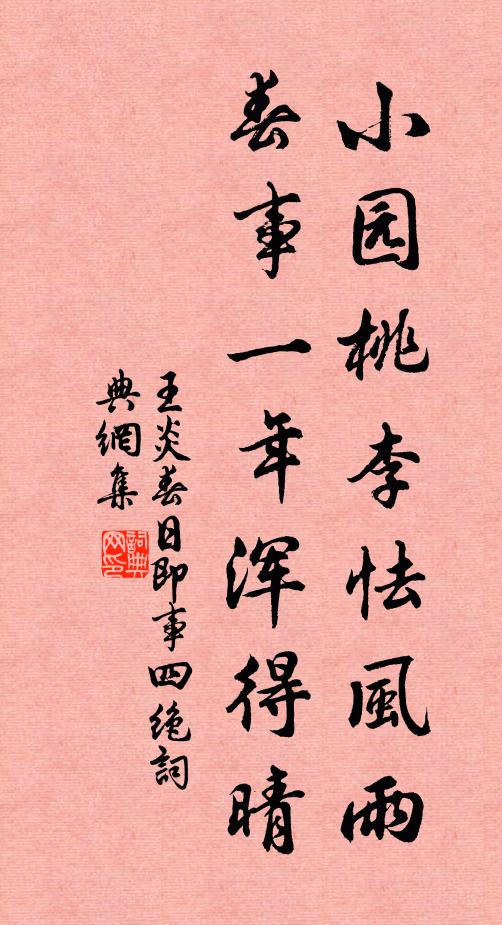 小园桃李怯風雨
春事一年浑得晴
王炎春日即事四绝詞
典網集
詞典网印